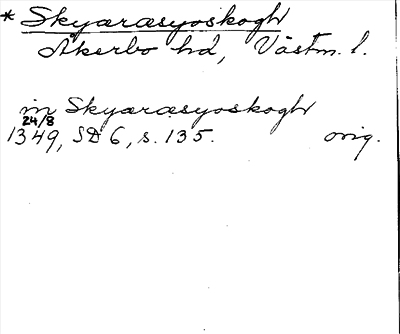 * Skyæræsyoskogh
Åkerbo hd, Västm. l.
in Skyæræsyoskogh
24/8
1349, SD 6, s. 135. orig.